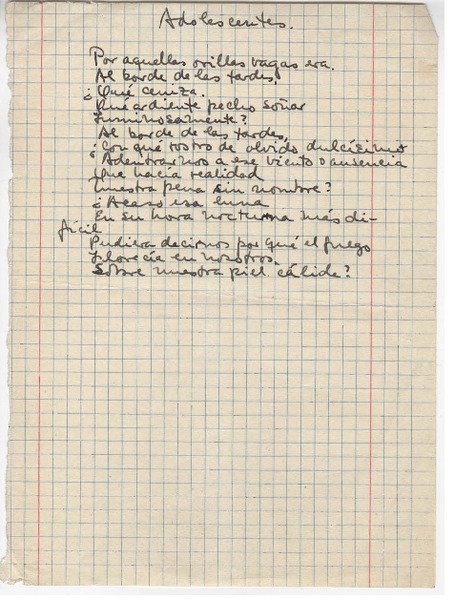 Adolescentes.
Por aquellas orillas vagas era.
Al borde de las tardes,
¿Qué ceniza.
Qué ardiente pecho soñar
Luminosamente?
Al borde de las tardes,
¿Con qué rostro de olvido dulcísimo
Adentrarnos a ese viento o ausencia
Que hacía realidad
Nuestra pena sin nombre?
¿Acaso esa luna
En su hora nocturna más di-
fícil
Pudiera decirnos por qué el fuego
Florecía en nosotros.
Sobre nuestra piel cálida?